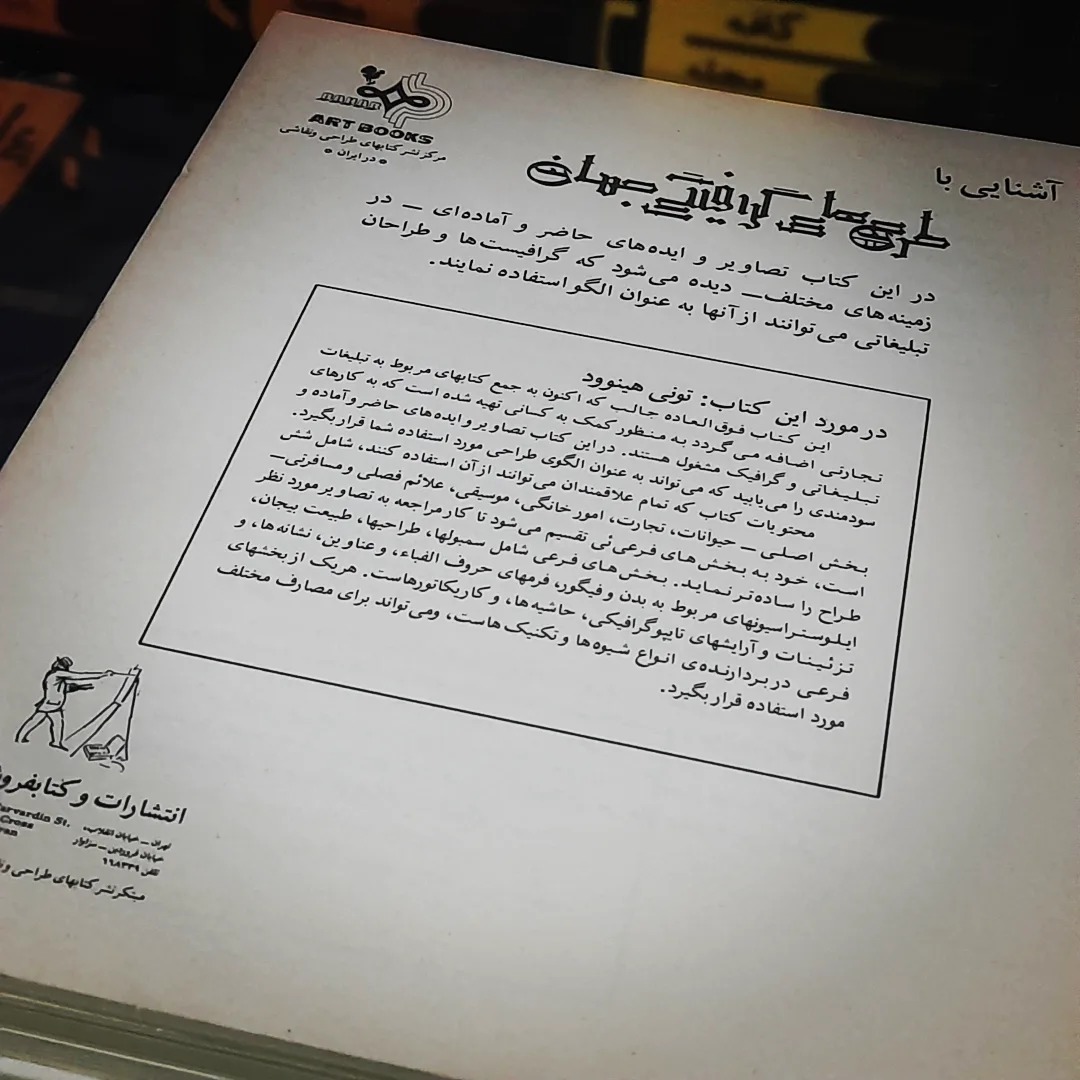 کافه
مجله
BAHAR
ART BOOKS
مرکز نشر کتابهای طراحی و نقاشی
• در ایران •
آشنایی با
طرحهای گرافیکی جهان
در این کتاب تصاویر و ایده‌های حاضر و آماده‌ای – در
زمینه‌های مختلف – دیده می‌شود که گرافیست‌ها و طراحان
تبلیغاتی می‌توانند از آنها به عنوان الگو استفاده نمایند.
در مورد این کتاب: تونی هینوود
این کتاب فوق‌العاده جالب که اکنون به جمع کتابهای مربوط به تبلیغات
تجارتی اضافه می‌گردد به منظور کمک به کسانی تهیه شده است که به کارهای
تبلیغاتی و گرافیک مشغول هستند. در این کتاب تصاویر و ایده‌های حاضر و آماده و
سودمندی را می‌یابید که می‌تواند به عنوان الگوی طراحی مورد استفاده شما قرار بگیرد.
محتویات کتاب که تمام علاقمندان می‌توانند از آن استفاده کنند، شامل شش
بخش اصلی – حیوانات، تجارت، امور خانگی، موسیقی، علائم فصلی و مسافرتی –
است، خود به بخش‌های فرعی‌ئی تقسیم می‌شود تا کار مراجعه به تصاویر مورد نظر
طراح را ساده‌تر نماید. بخش‌های فرعی شامل سمبولها، طراحیها، طبیعت بیجان،
ایلوستراسیونهای مربوط به بدن و فیگور، فرمهای حروف الفباء، و عناوین، نشانه‌ها، و
تزئینات و آرایشهای تایپوگرافیکی، حاشیه‌ها، و کاریکاتورهاست. هریک از بخشهای
فرعی دربردارنده‌ی انواع شیوه‌ها و تکنیک‌هاست، و می‌تواند برای مصارف مختلف
مورد استفاده قرار بگیرد.
انتشارات و کتابفرو
تهران – خیابان انقلاب،
arvardin St.
خیابان فروردین –
Cross
تلفن ۶۶۸۳۳۹
ran
مبتکر نشر کتابهای طراحی و